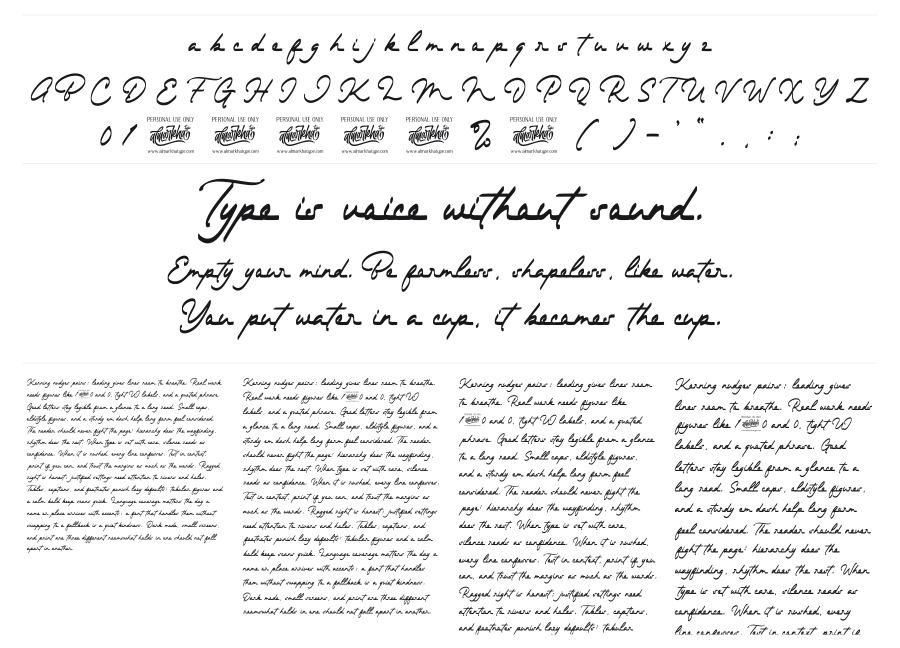 a b c d e f g h i j k l m n o p q r s t u v w x y z
A B C D E F G H I J K L M N O P Q R S T U V W X Y Z
PERSONAL USE ONLY PERSONAL USE ONLY PERSONAL USE ONLY PERSONAL USE ONLY PERSONAL USE ONLY PERSONAL USE ONLY
0 1 almarkhatype almarkhatype almarkhatype almarkhatype almarkhatype % almarkhatype ( ) – ' “ . , : ;
www.almarkhatype.com www.almarkhatype.com www.almarkhatype.com www.almarkhatype.com www.almarkhatype.com www.almarkhatype.com
Type is voice without sound.
Empty your mind. Be formless, shapeless, like water.
You put water in a cup, it becomes the cup.
Kerning nudges pairs; leading gives lines room to breathe. Real work
needs figures like 1 0 and 0, tight W labels, and a quoted phrase.
Good letters stay legible from a glance to a long read. Small caps,
oldstyle figures, and a sturdy em dash help long form feel considered.
The reader should never fight the page: hierarchy does the wayfinding,
rhythm does the rest. When type is set with care, silence reads as
confidence. When it is rushed, every line confesses. Test in context,
print if you can, and trust the margins as much as the words. Ragged
right is honest; justified settings need attention to rivers and holes.
Tables, captions, and footnotes punish lazy defaults: tabular figures and
a calm bold keep scans quick. Language coverage matters the day a
name or place arrives with accents; a font that handles them without
swapping to a fallback is a quiet kindness. Dark mode, small screens,
and print are three different rooms: what holds in one should not fall
apart in another.
Kerning nudges pairs; leading gives lines room to breathe.
Real work needs figures like 1 0 and 0, tight W
labels, and a quoted phrase. Good letters stay legible from
a glance to a long read. Small caps, oldstyle figures, and a
sturdy em dash help long form feel considered. The reader
should never fight the page: hierarchy does the wayfinding,
rhythm does the rest. When type is set with care, silence
reads as confidence. When it is rushed, every line confesses.
Test in context, print if you can, and trust the margins as
much as the words. Ragged right is honest; justified settings
need attention to rivers and holes. Tables, captions, and
footnotes punish lazy defaults: tabular figures and a calm
bold keep scans quick. Language coverage matters the day a
name or place arrives with accents; a font that handles
them without swapping to a fallback is a quiet kindness.
Dark mode, small screens, and print are three different
rooms: what holds in one should not fall apart in another.
Kerning nudges pairs; leading gives lines room
to breathe. Real work needs figures like
1 0 and 0, tight W labels, and a quoted
phrase. Good letters stay legible from a glance
to a long read. Small caps, oldstyle figures,
and a sturdy em dash help long form feel
considered. The reader should never fight the
page: hierarchy does the wayfinding, rhythm
does the rest. When type is set with care,
silence reads as confidence. When it is rushed,
every line confesses. Test in context, print if you
can, and trust the margins as much as the words.
Ragged right is honest; justified settings need
attention to rivers and holes. Tables, captions,
and footnotes punish lazy defaults: tabular
Kerning nudges pairs; leading gives
lines room to breathe. Real work needs
figures like 1 0 and 0, tight W
labels, and a quoted phrase. Good
letters stay legible from a glance to a
long read. Small caps, oldstyle figures,
and a sturdy em dash help long form
feel considered. The reader should never
fight the page: hierarchy does the
wayfinding, rhythm does the rest. When
type is set with care, silence reads as
confidence. When it is rushed, every
line confesses. Test in context, print if